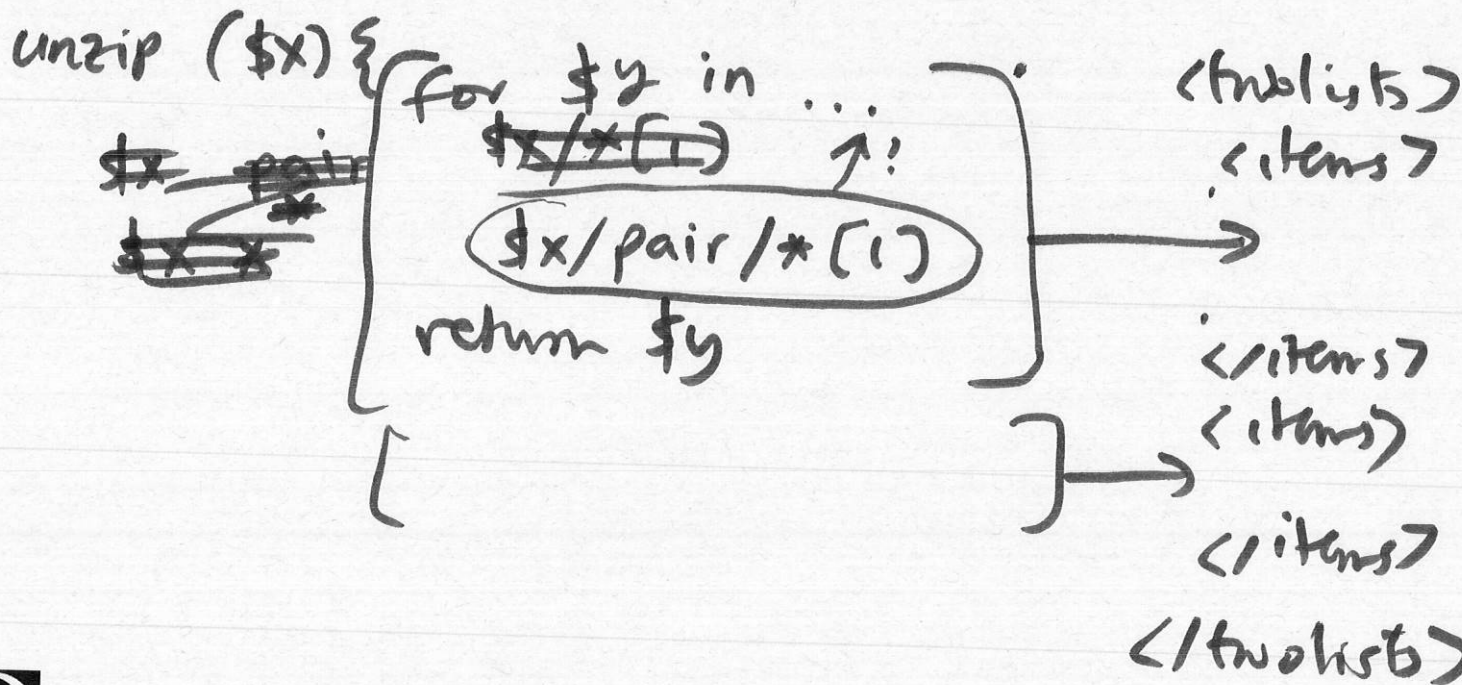 unzip ($x) {
for $y in ...
$x/*[1]
↑?
$x pair
*
$x *
$x/pair/*[1]
return $y
<twolists>
<items>
</items>
<items>
</items>
</twolists>